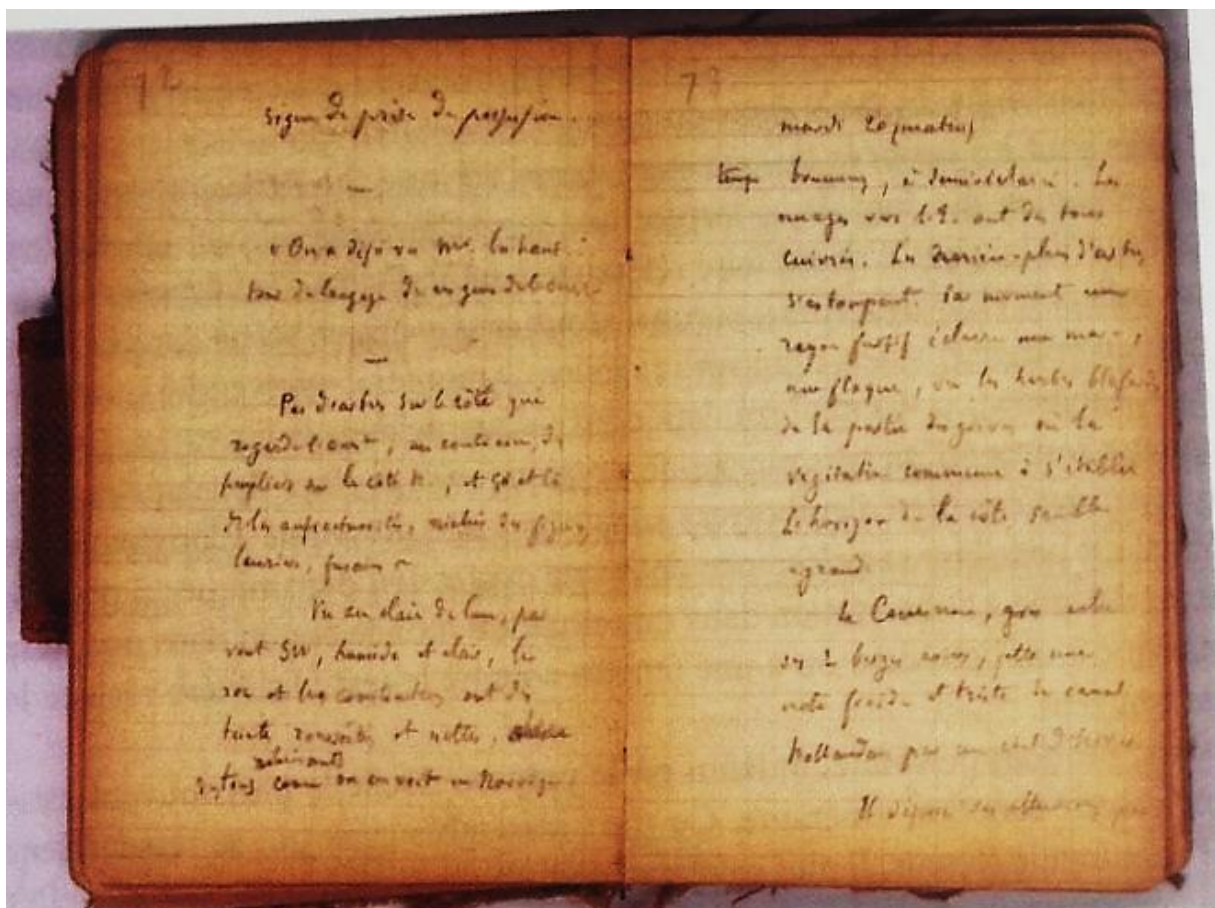 72
signe de prise de possession.
—
« On a déjà vu Mr. là haut.
tour de langage de ces gens de
—
Pas d'arbres sur le côté qui
regarde , au contraire, des
peupliers sur le côté N., et çà et là
de les anfractuosités, nichés des figuiers
lauriers, fusains
Vu au clair de lune, par
vent SW, humide et clair, le
roc et les ont des
teintes et nettes,
reluisants
comme on en voit en Norvège
73
mardi 20 (matin)
temps brumeux, à demi éclairci. Les
nuages vers l'E. ont des tons
cuivrés. Les derrière-plans d'arbres
s'estompent. Par moment un
rayon furtif éclaire une mare,
une flaque, ou les herbes blafardes
de la partie des grèves où la
végétation commence à s'établir
L'horizon de la côte semble
agrandi
Le Couesnon, gris entre
ses 2 berges noires, jette une
note froide et triste de canal
hollandais par un
Il